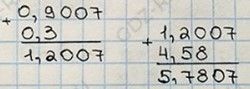 + 0,9007
0,3
1,2007
+ 1,2007
4,58
5,7807